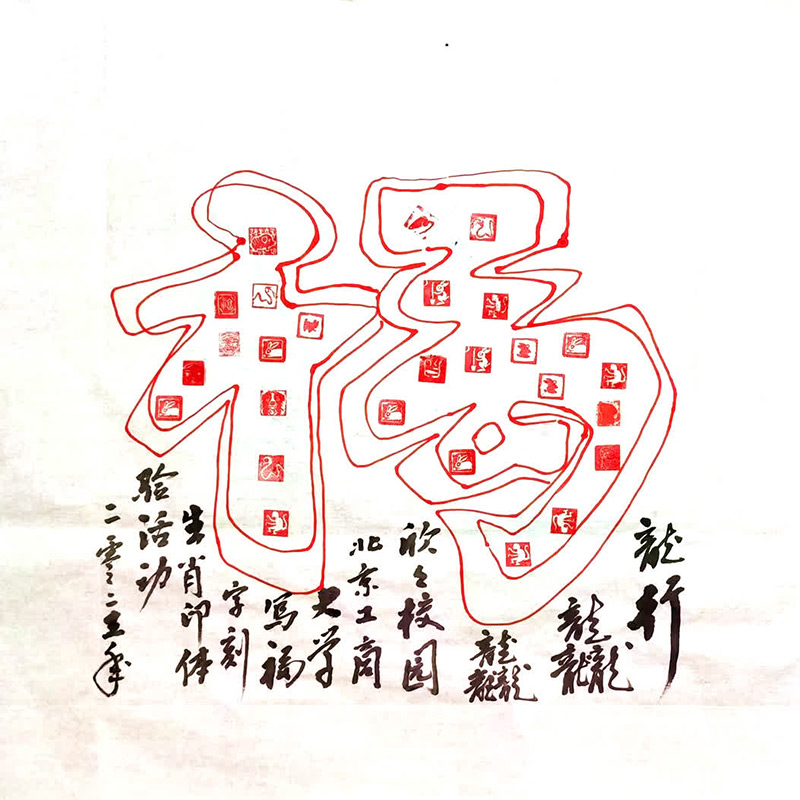 福
龍行
龘
龘
欣々校园
北京工商
大学
写福
字刻
生肖印体
验活动
二零二五年